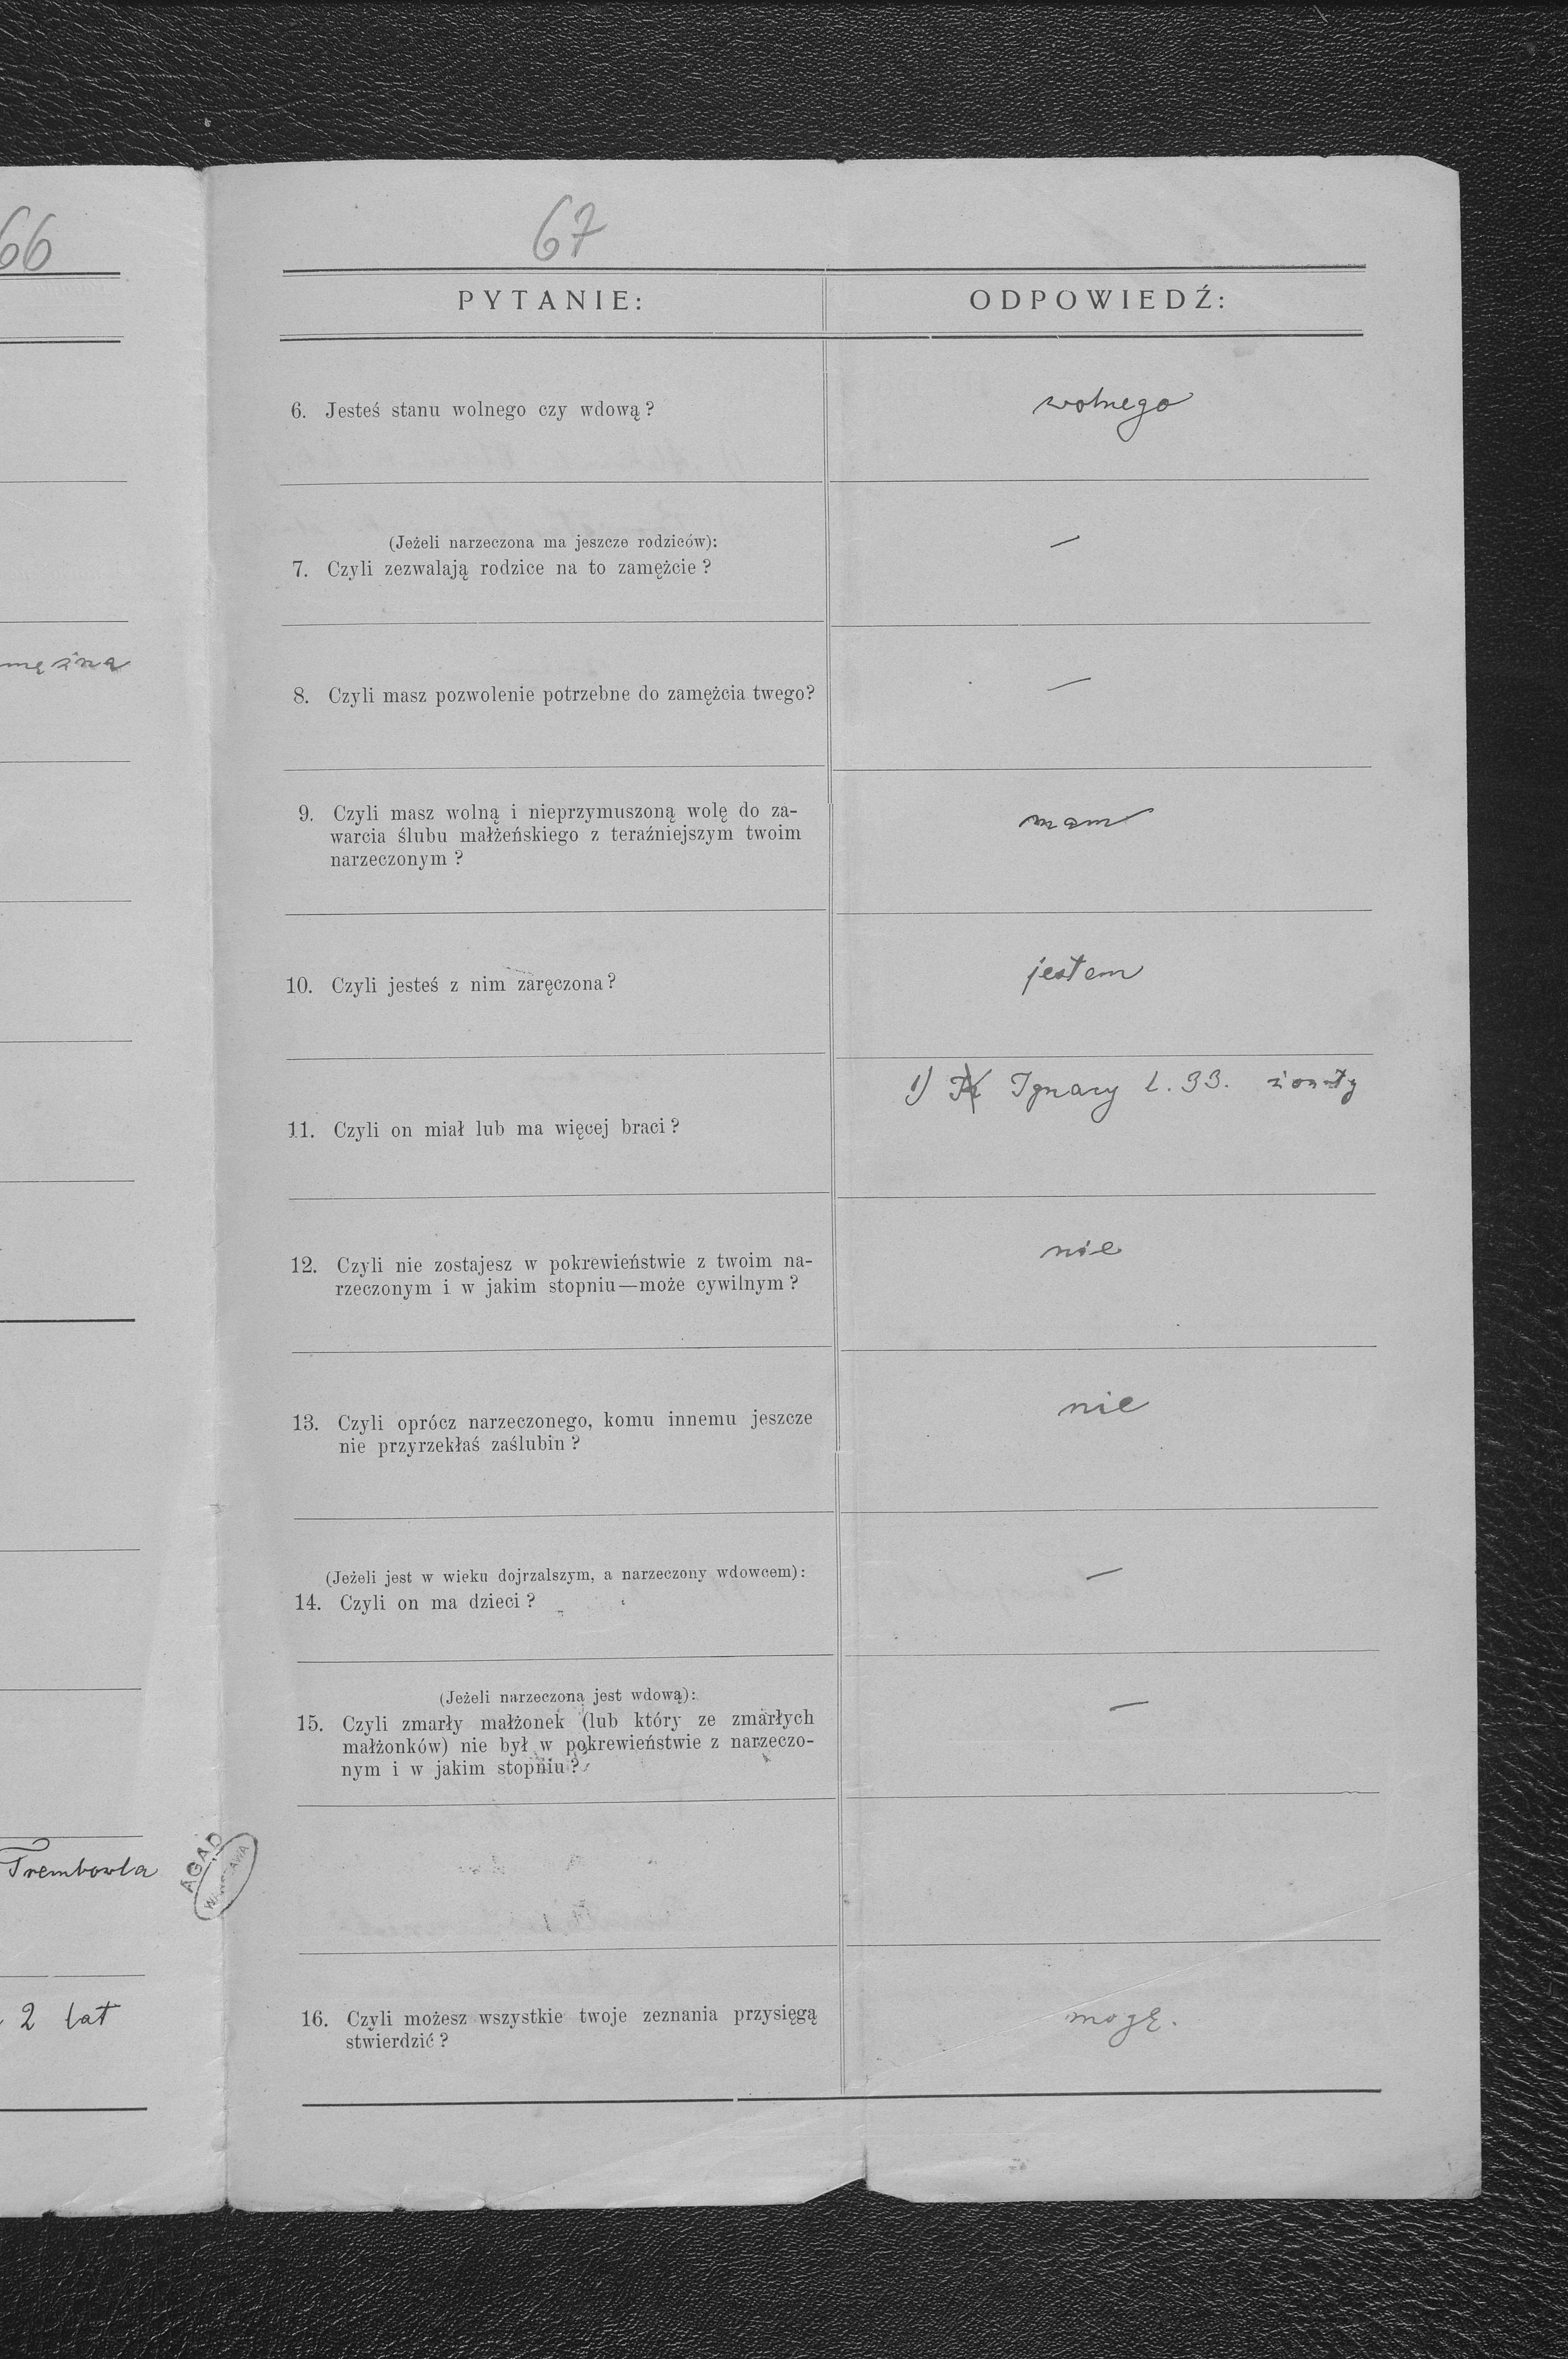 66
mężna
Trembowla
2 lat
AGAD
67
PYTANIE: ODPOWIEDŹ:
6. Jesteś stanu wolnego czy wdową? wolnego
(Jeżeli narzeczona ma jeszcze rodziców): —
7. Czyli zezwalają rodzice na to zamęźcie?
8. Czyli masz pozwolenie potrzebne do zamęźcia twego? —
9. Czyli masz wolną i nieprzymuszoną wolę do za-
warcia ślubu małżeńskiego z teraźniejszym twoim
narzeczonym?
mam
10. Czyli jesteś z nim zaręczona? jestem
11. Czyli on miał lub ma więcej braci? 1) Ignacy l. 33. żonaty
12. Czyli nie zostajesz w pokrewieństwie z twoim na-
rzeczonym i w jakim stopniu—może cywilnym?
nie
13. Czyli oprócz narzeczonego, komu innemu jeszcze
nie przyrzekłaś zaślubin?
nie
(Jeżeli jest w wieku dojrzalszym, a narzeczony wdowcem): —
14. Czyli on ma dzieci?
(Jeżeli narzeczona jest wdową): —
15. Czyli zmarły małżonek (lub który ze zmarłych
małżonków) nie był w pokrewieństwie z narzeczo-
nym i w jakim stopniu?
16. Czyli możesz wszystkie twoje zeznania przysięgą
stwierdzić?
mogę.